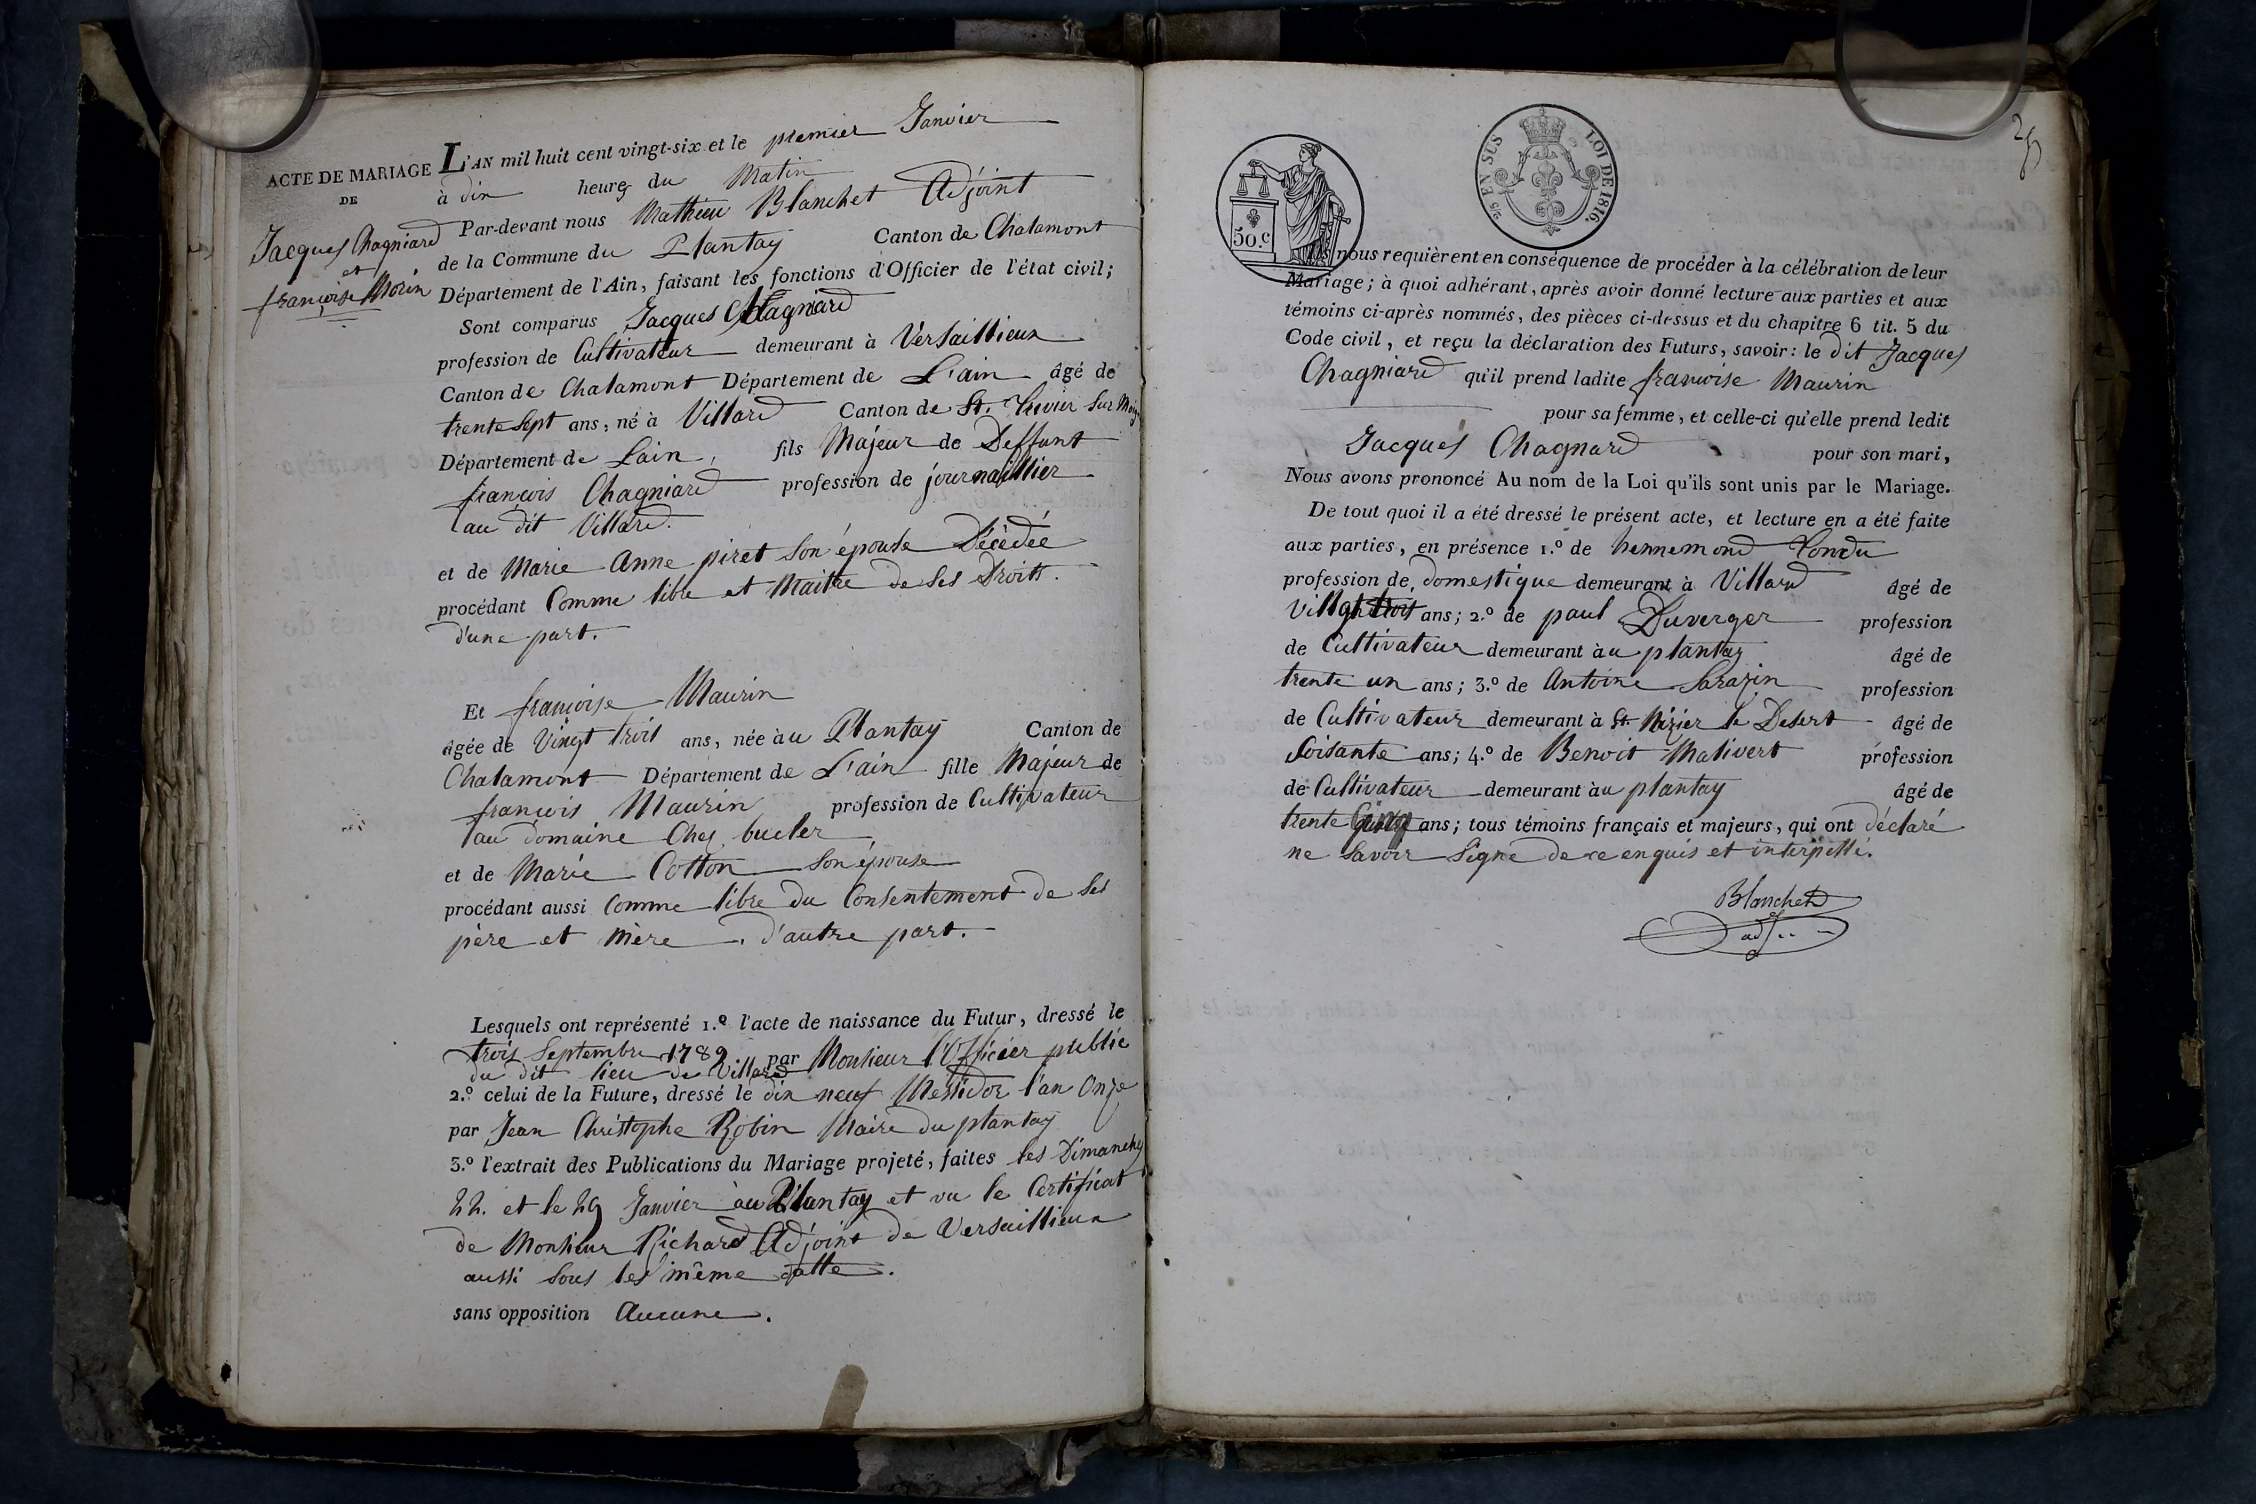 ACTE DE MARIAGE
DE
Jacques Chagniard
et
françoise Morin
L'AN mil huit cent vingt-six et le premier Janvier
à dix heures du Matin
Par-devant nous Mathieu Blanchet Adjoint
de la Commune du Plantay Canton de Chalamont
Département de l'Ain, faisant les fonctions d'Officier de l'état civil;
Sont comparus Jacques Chagniard
profession de Cultivateur demeurant à Versaillieux
Canton de Chalamont Département de L'ain âgé de
trente sept ans, né à Villard Canton de St. Trivier sur
Département de Lain, fils Majeur de Deffunt
françois Chagniard profession de journaillier
au dit Villard.
et de Marie Anne piret son épouse Décédée
procédant Comme libre et Maitre de ses Droits.
d'une part.
Et françoise Maurin
âgée de Vingt trois ans, née au Plantay Canton de
Chalamont Département de L'ain fille Majeur de
françois Maurin profession de Cultivateur
au domaine Chez bucler
et de Marie Cotton son épouse
procédant aussi Comme libre du Consentement de ses
père et mère. d'autre part.
Lesquels ont représenté 1.º l'acte de naissance du Futur, dressé le
trois Septembre 1789 par Monsieur l'Officier public
du dit lieu de Villard
2.º celui de la Future, dressé le dix neuf Messidor l'an Onze
par Jean Christophe Robin Maire du plantay
3.º l'extrait des Publications du Mariage projeté, faites les Dimanches
22. et le 29 Janvier au Plantay et vu le Certificat
de Monsieur Richard Adjoint de Versaillieux
aussi sous les même datte.
sans opposition Aucune.
25 EN SUS LOI DE 1816.
50.C
Ils nous requièrent en conséquence de procéder à la célébration de leur
Mariage; à quoi adhérant, après avoir donné lecture aux parties et aux
témoins ci-après nommés, des pièces ci-dessus et du chapitre 6 tit. 5 du
Code civil, et reçu la déclaration des Futurs, savoir: le dit Jacques
Chagniard qu'il prend ladite françoise Maurin
pour sa femme, et celle-ci qu'elle prend ledit
Jacques Chagnard pour son mari,
Nous avons prononcé Au nom de la Loi qu'ils sont unis par le Mariage.
De tout quoi il a été dressé le présent acte, et lecture en a été faite
aux parties, en présence 1.º de hennemond
profession de domestique demeurant à Villard âgé de
ans; 2.º de paul Duverger profession
de Cultivateur demeurant au plantay âgé de
trente un ans; 3.º de Antoine Sarazin profession
de Cultivateur demeurant à St. Nizier le Desert âgé de
Soisante ans; 4.º de Benoit Mativert profession
de Cultivateur demeurant au plantay âgé de
trente Cinq ans; tous témoins français et majeurs, qui ont déclaré
ne savoir signé de ce enquis et interpellé.
Blanchet
adj